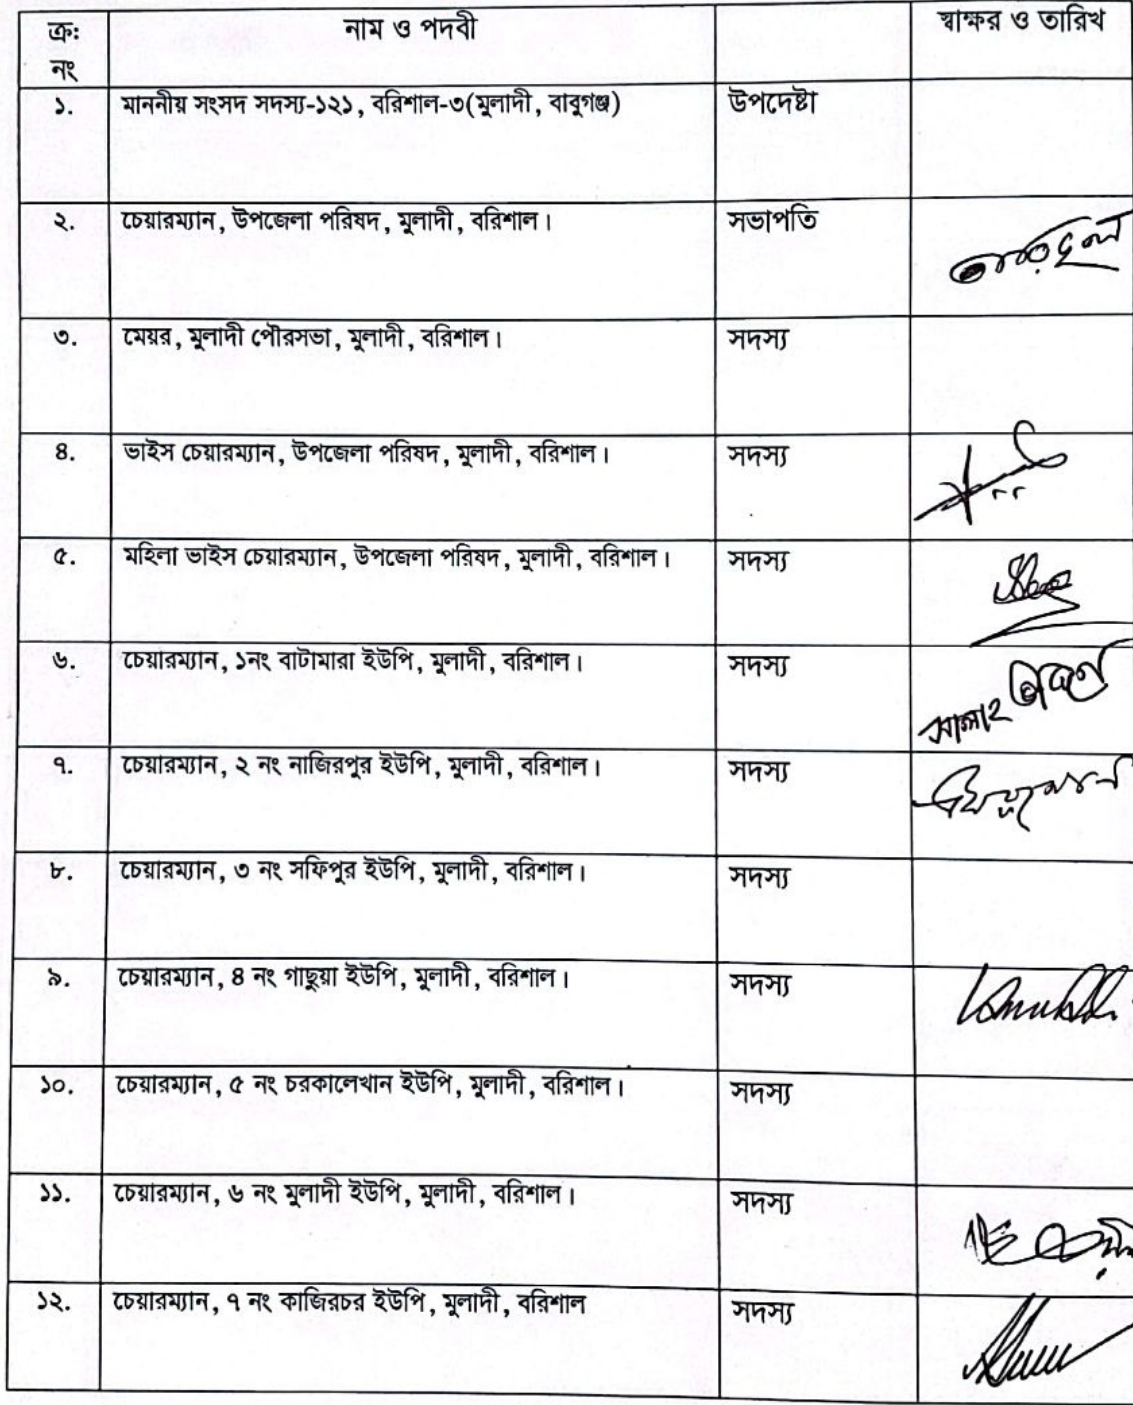 ক্র: নাম ও পদবী স্বাক্ষর ও তারিখ
নং
১. মাননীয় সংসদ সদস্য-১২১, বরিশাল-৩(মুলাদী, বাবুগঞ্জ) উপদেষ্টা
২. চেয়ারম্যান, উপজেলা পরিষদ, মুলাদী, বরিশাল। সভাপতি
৩. মেয়র, মুলাদী পৌরসভা, মুলাদী, বরিশাল। সদস্য
৪. ভাইস চেয়ারম্যান, উপজেলা পরিষদ, মুলাদী, বরিশাল। সদস্য
৫. মহিলা ভাইস চেয়ারম্যান, উপজেলা পরিষদ, মুলাদী, বরিশাল। সদস্য
৬. চেয়ারম্যান, ১নং বাটামারা ইউপি, মুলাদী, বরিশাল। সদস্য
৭. চেয়ারম্যান, ২ নং নাজিরপুর ইউপি, মুলাদী, বরিশাল। সদস্য
৮. চেয়ারম্যান, ৩ নং সফিপুর ইউপি, মুলাদী, বরিশাল। সদস্য
৯. চেয়ারম্যান, ৪ নং গাছুয়া ইউপি, মুলাদী, বরিশাল। সদস্য
১০. চেয়ারম্যান, ৫ নং চরকালেখান ইউপি, মুলাদী, বরিশাল। সদস্য
১১. চেয়ারম্যান, ৬ নং মুলাদী ইউপি, মুলাদী, বরিশাল। সদস্য
১২. চেয়ারম্যান, ৭ নং কাজিরচর ইউপি, মুলাদী, বরিশাল সদস্য